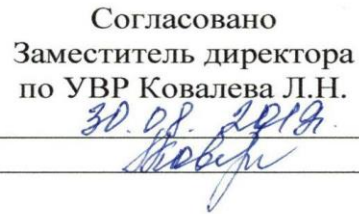 Согласовано
Заместитель директора
по УВР Ковалева Л.Н.
30.08.2019г.